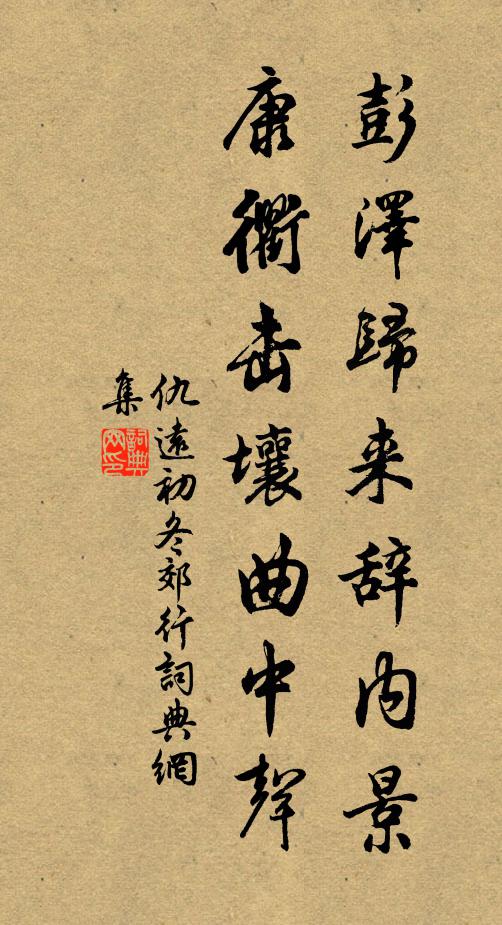 彭澤歸来辞内景
康衢击壤曲中聲
仇遠初冬郊行詞典網
集
詞典
网印